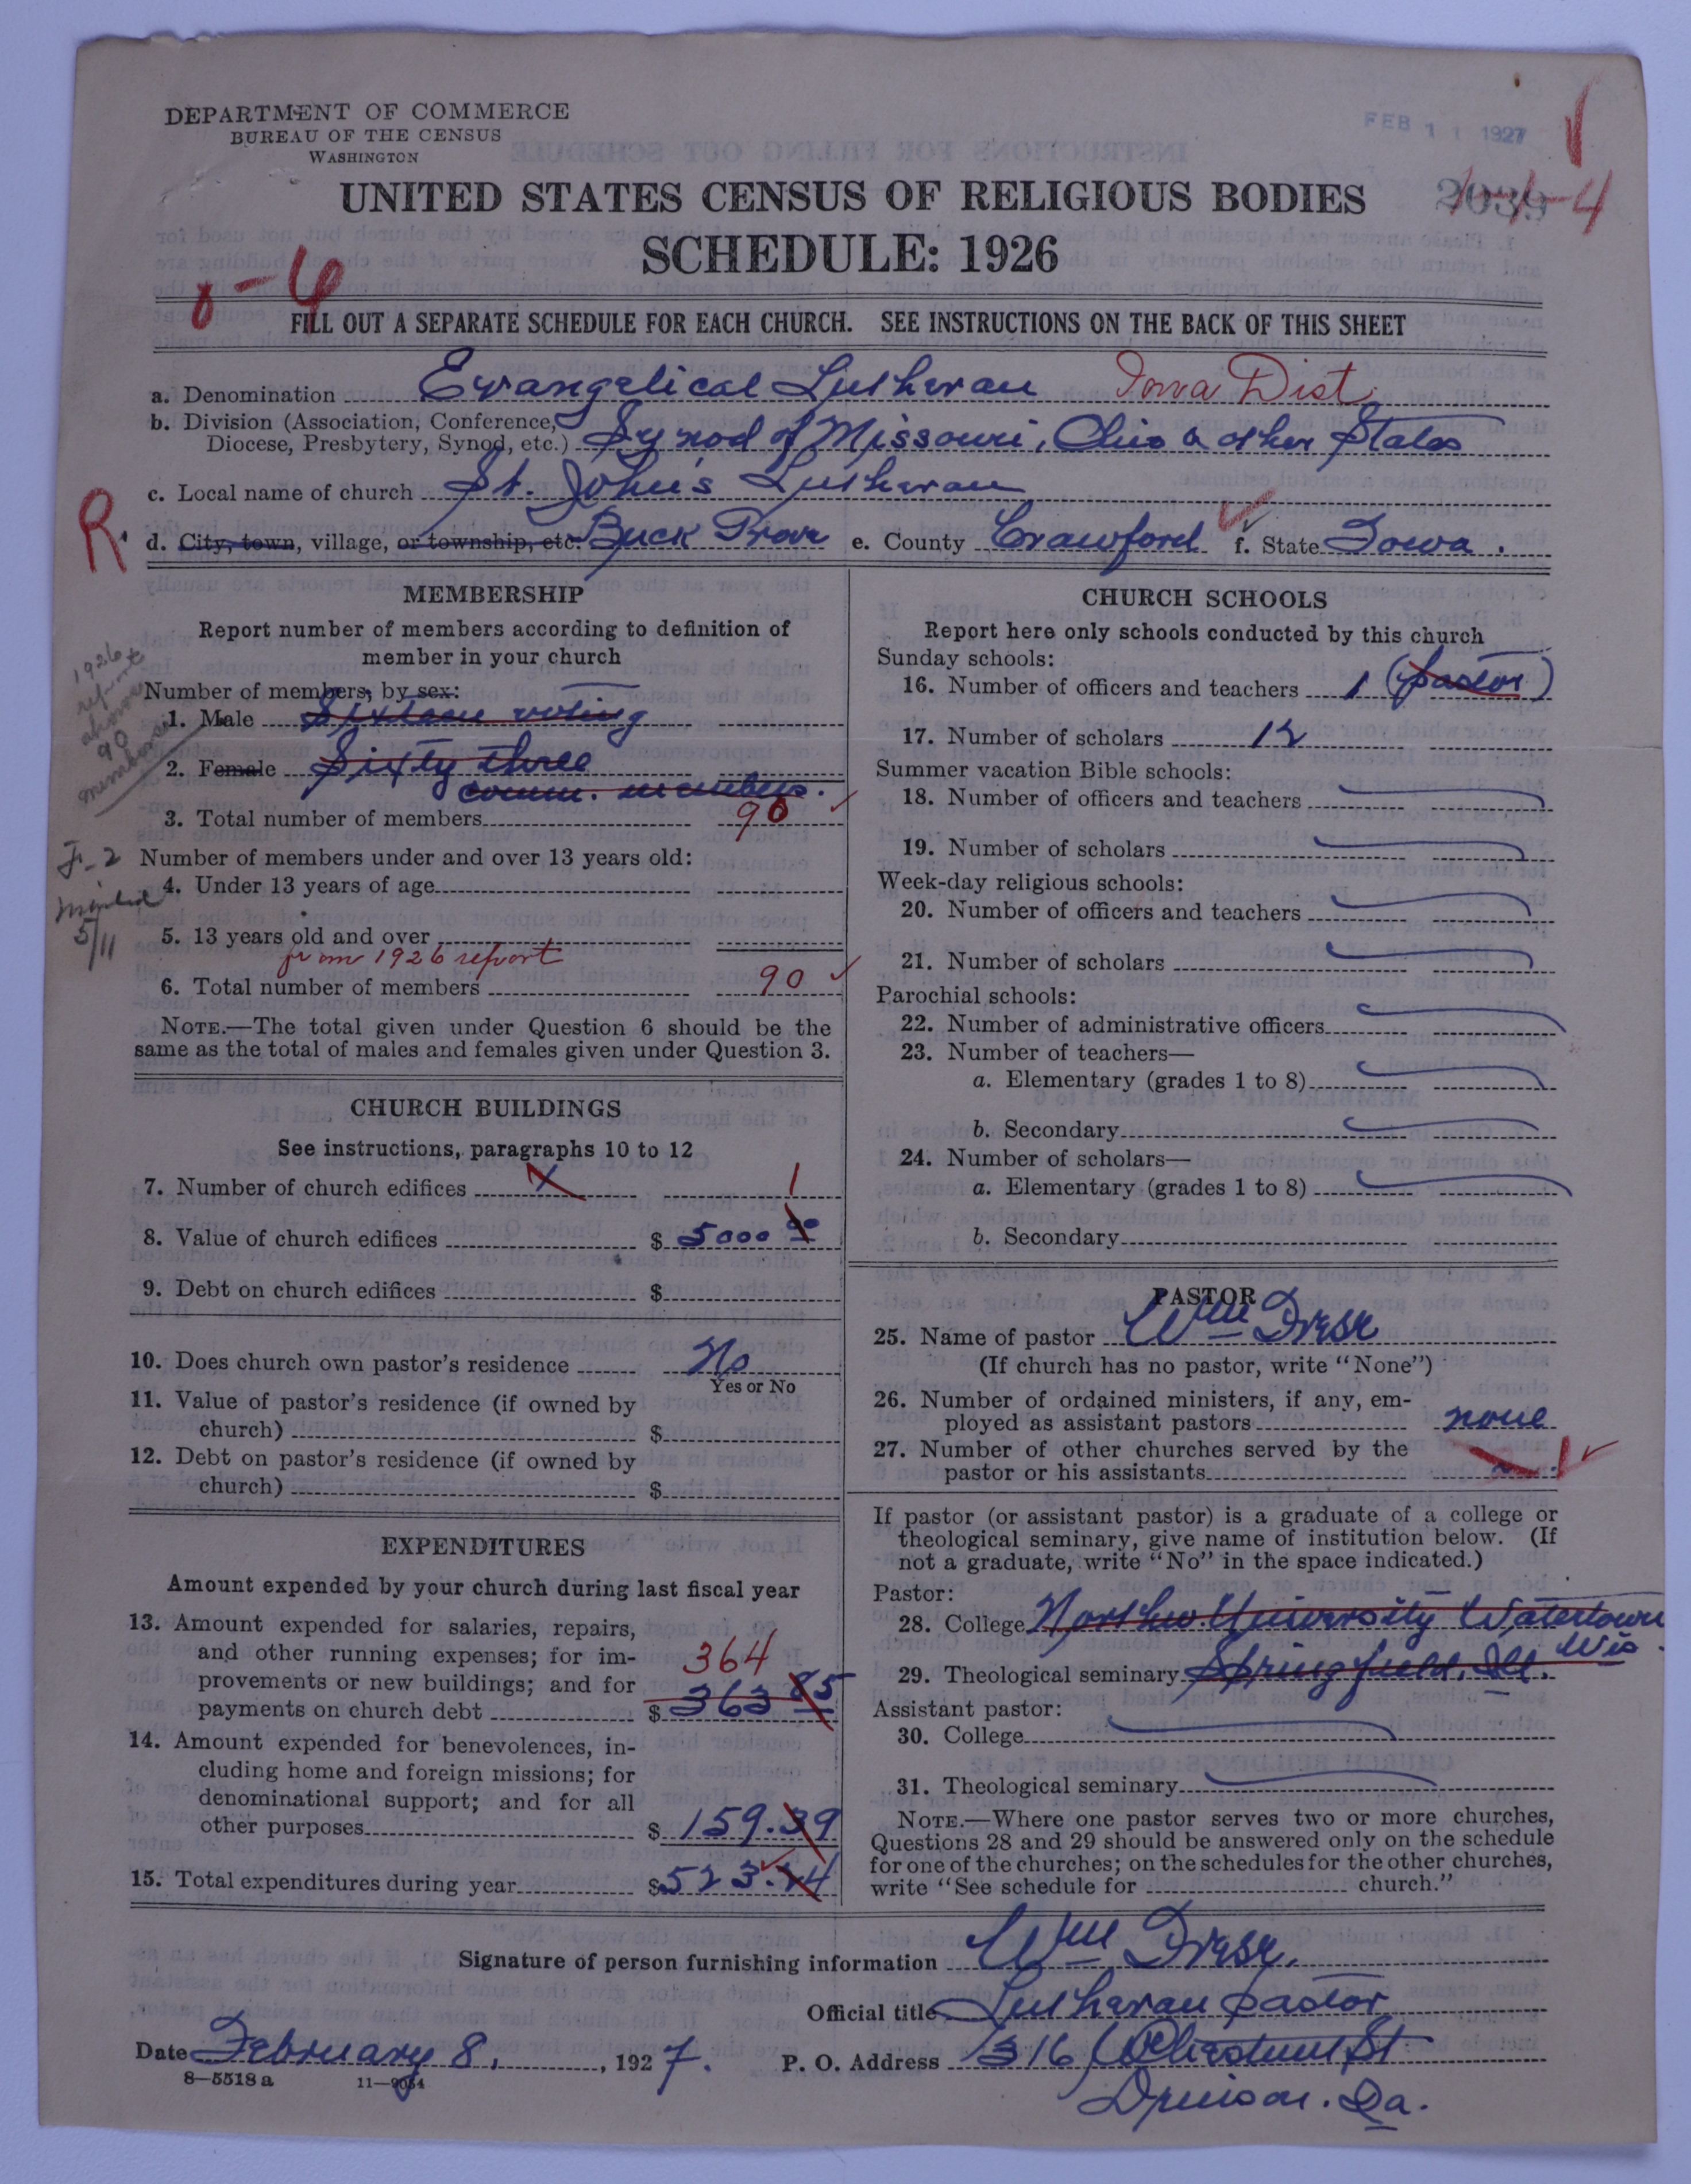 DEPARTMENT OF COMMERCE
BUREAU OF THE CENSUS
WASHINGTON
FEB 11 1927
UNITED STATES CENSUS OF RELIGIOUS BODIES
SCHEDULE: 1926
FILL OUT A SEPARATE SCHEDULE FOR EACH CHURCH. SEE INSTRUCTIONS ON THE BACK OF THIS SHEET
a. Denomination Evangelical Lutheran Iowa Dist.
b. Division (Association, Conference,
Diocese, Presbytery, Synod, etc.) Synod of Missouri, Ohio & other States
c. Local name of church St. John's Lutheran
R. d. City, town, village, or township, etc. Buck Grove e. County Crawford f. State Iowa.
MEMBERSHIP
Report number of members according to definition of
member in your church
1926 report
above
90
members
Number of members, by sex:
1. Male Sixteen voting
2. Female Sixty three
comm. members.
3. Total number of members 90
F-2
5/11
Number of members under and over 13 years old:
4. Under 13 years of age
5. 13 years old and over
from 1926 report
6. Total number of members 90
NOTE.—The total given under Question 6 should be the
same as the total of males and females given under Question 3.
CHURCH BUILDINGS
See instructions, paragraphs 10 to 12
7. Number of church edifices 1
8. Value of church edifices $ 5000 00
9. Debt on church edifices $
10. Does church own pastor's residence No
Yes or No
11. Value of pastor's residence (if owned by
church) $
12. Debt on pastor's residence (if owned by
church) $
EXPENDITURES
Amount expended by your church during last fiscal year
13. Amount expended for salaries, repairs,
and other running expenses; for im- 364
provements or new buildings; and for
payments on church debt $ 363 85
14. Amount expended for benevolences, in-
cluding home and foreign missions; for
denominational support; and for all
other purposes $ 159.39
15. Total expenditures during year $ 523.24
CHURCH SCHOOLS
Report here only schools conducted by this church
Sunday schools:
16. Number of officers and teachers 1 (pastor)
17. Number of scholars 12
Summer vacation Bible schools:
18. Number of officers and teachers
19. Number of scholars
Week-day religious schools:
20. Number of officers and teachers
21. Number of scholars
Parochial schools:
22. Number of administrative officers
23. Number of teachers—
a. Elementary (grades 1 to 8)
b. Secondary
24. Number of scholars—
a. Elementary (grades 1 to 8)
b. Secondary
PASTOR
25. Name of pastor Wm Frese
(If church has no pastor, write "None")
26. Number of ordained ministers, if any, em-
ployed as assistant pastors none
27. Number of other churches served by the
pastor or his assistants 1
If pastor (or assistant pastor) is a graduate of a college or
theological seminary, give name of institution below. (If
not a graduate, write "No" in the space indicated.)
Pastor:
28. College Northw. University Watertown
Wis.
29. Theological seminary Springfield, Ill.
Assistant pastor:
30. College
31. Theological seminary
NOTE.—Where one pastor serves two or more churches,
Questions 28 and 29 should be answered only on the schedule
for one of the churches; on the schedules for the other churches,
write "See schedule for church."
Signature of person furnishing information Wm Frese.
Official title Lutheran pastor
Date February 8, , 1927. P. O. Address 1316 Chestnut St
8—5518a 11—9054
Denison. Ia.